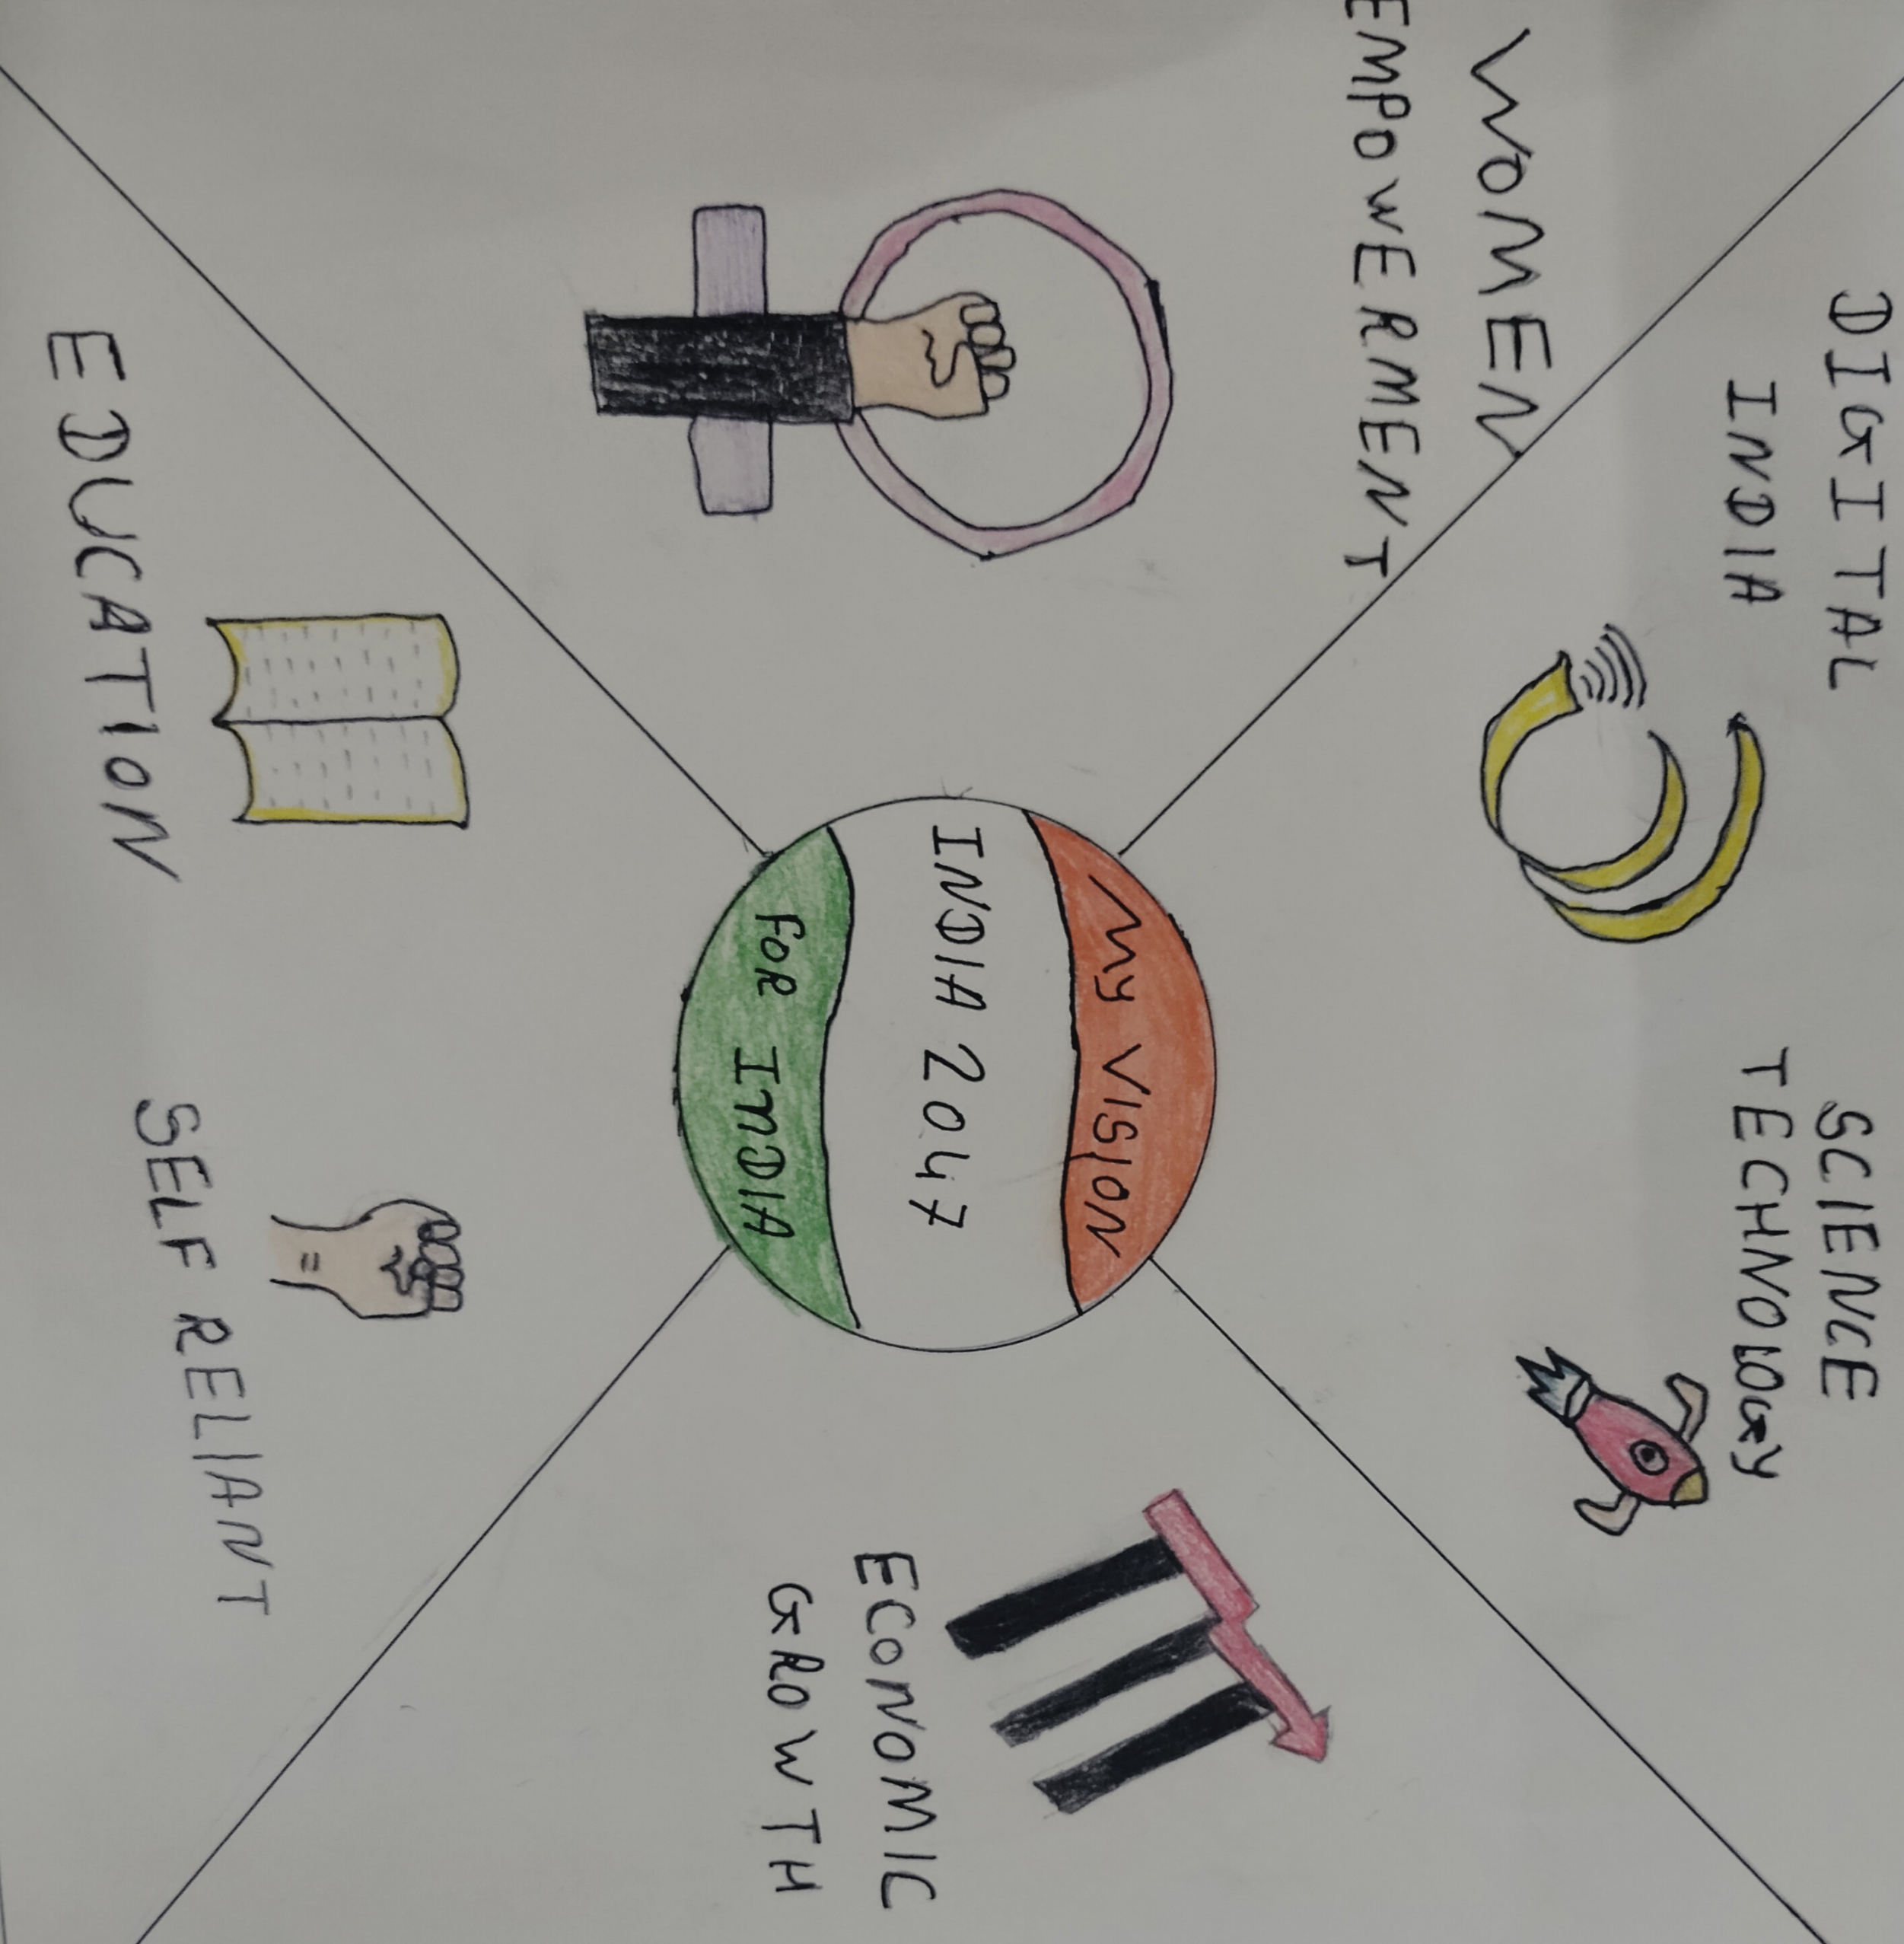 DIGITAL
INDIA
SCIENCE
TECHNOLOGY
WOMEN
EMPOWERMENT
My VISION
INDIA 2047
FOR INDIA
ECONOMIC
GROWTH
EDUCATION
SELF RELIANT